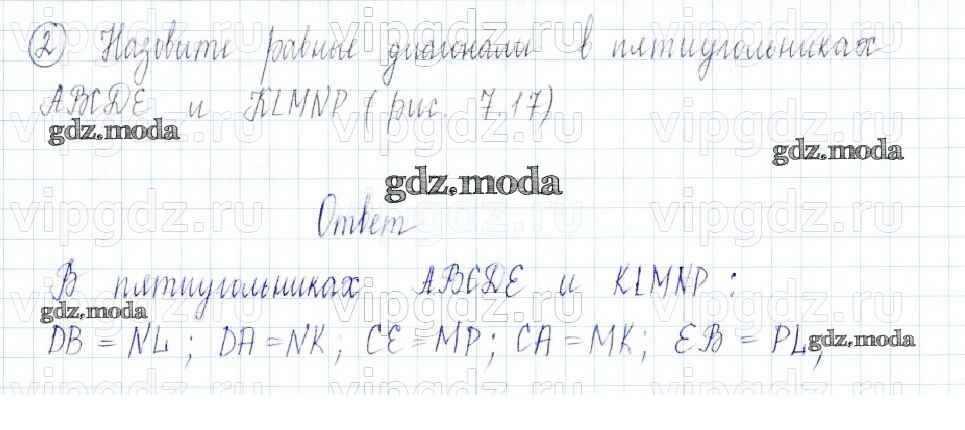 ② Назовите равные диагонали в пятиугольниках
ABCDE и KLMNP (рис. 7.17)
gdz.moda
gdz.moda
gdz.moda
Ответ
В пятиугольниках ABCDE и KLMNP:
gdz.moda
DB = NL; DA = NK; CE = MP; CA = MK; EB = PL;
gdz.moda
vipgdz.ru vipgdz.ru vipgdz.ru